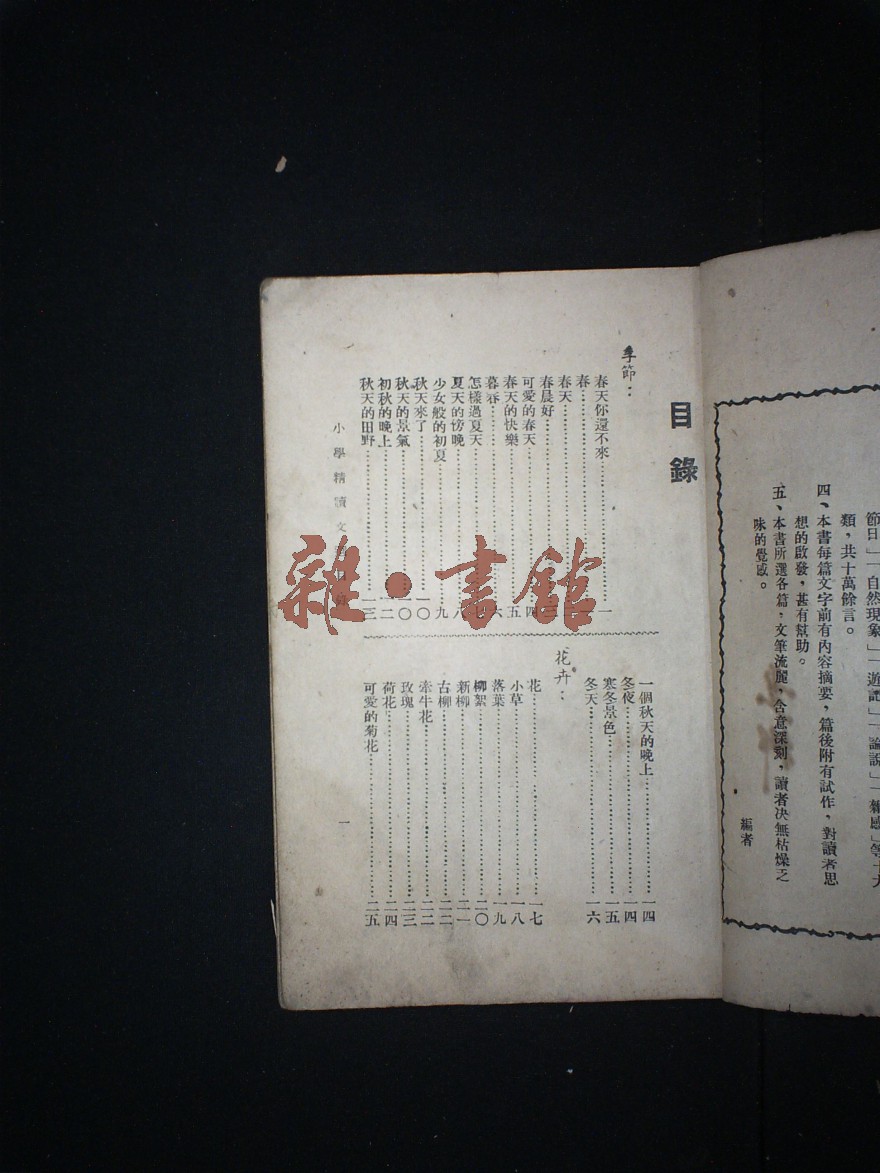 節日」「自然現象」「遊記」「論說」「雜感」等十大
類，共十萬餘言。
四、本書每篇文字前有內容摘要，篇後附有試作，對讀者思
想的啟發，甚有幫助。
五、本書所選各篇，文筆流麗，含意深刻，讀者決無枯燥乏
味的覺感。
編者
目錄
季節：
春天你還不來……一
春……
春天……
春晨好……三
可愛的春天……四
春天的快樂……五
暮春……六
怎樣過夏天……七
夏天的傍晚……八
少女般的初夏……九
秋天來了……一〇
秋天的景氣……一〇
初秋的晚上……一二
秋天的田野……一三
一個秋天的晚上……一四
冬夜……一四
寒冬景色……一五
冬天……一六
花卉：
花……一七
小草……一八
落葉……一九
柳絮……二〇
新柳……二一
古柳……二二
牽牛花……二二
玫瑰……二三
荷花……二四
可愛的菊花……二五
小學精讀文
一
雜·書館